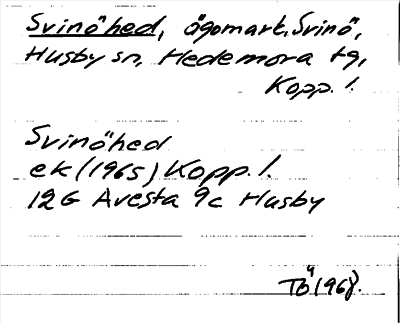 Svinöhed, ägomark, Svinö,
Husby sn, Hedemora tg,
Kopp. l.
Svinöhed
ek (1965) Kopp. l.
12G Avesta 9c Husby
TÖ 1968.